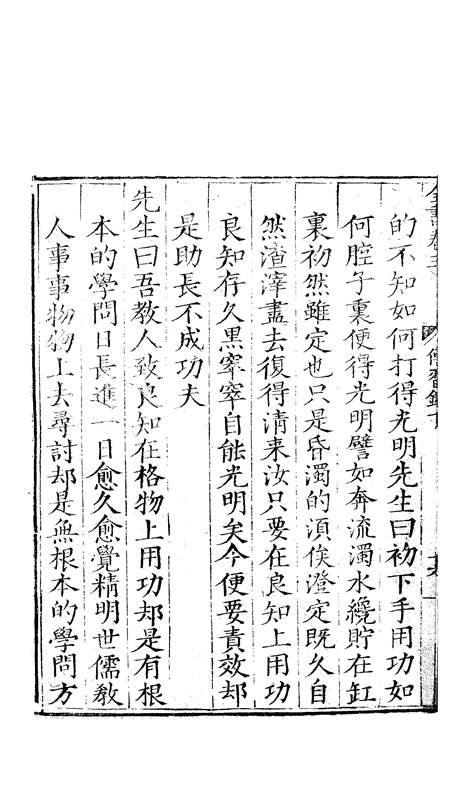 全書卷三
傳習錄下
的不知如何打得光明先生曰初下手用功如
何腔子裏便得光明譬如奔流濁水纔貯在缸
裏初然雖定也只是昏濁的湏俟澄定既久自
然渣滓盡去復得清来汝只要在良知上用功
良知存久黒窣窣自能光明矣今便要責效却
是助長不成功夫
先生曰吾教人致良知在格物上用功却是有根
本的學問日長進一日愈久愈覺精明世儒教
人事事物物上去尋討却是無根本的學問方